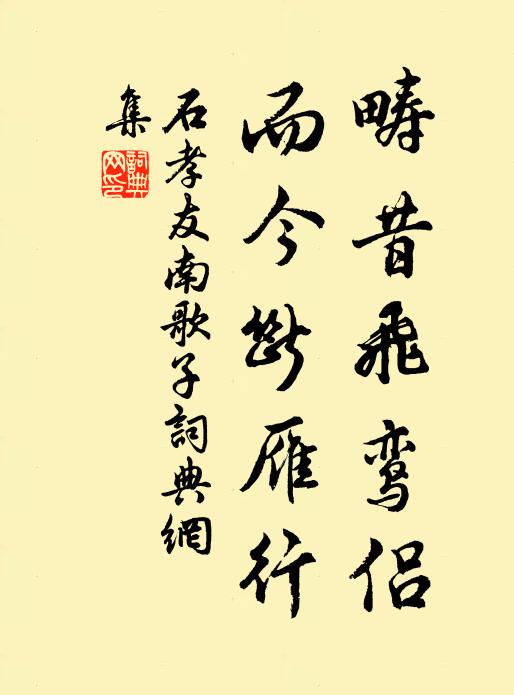 疇昔飛鸾侣
而今斷雁行
石孝友南歌子詞典網
集
詞典网印